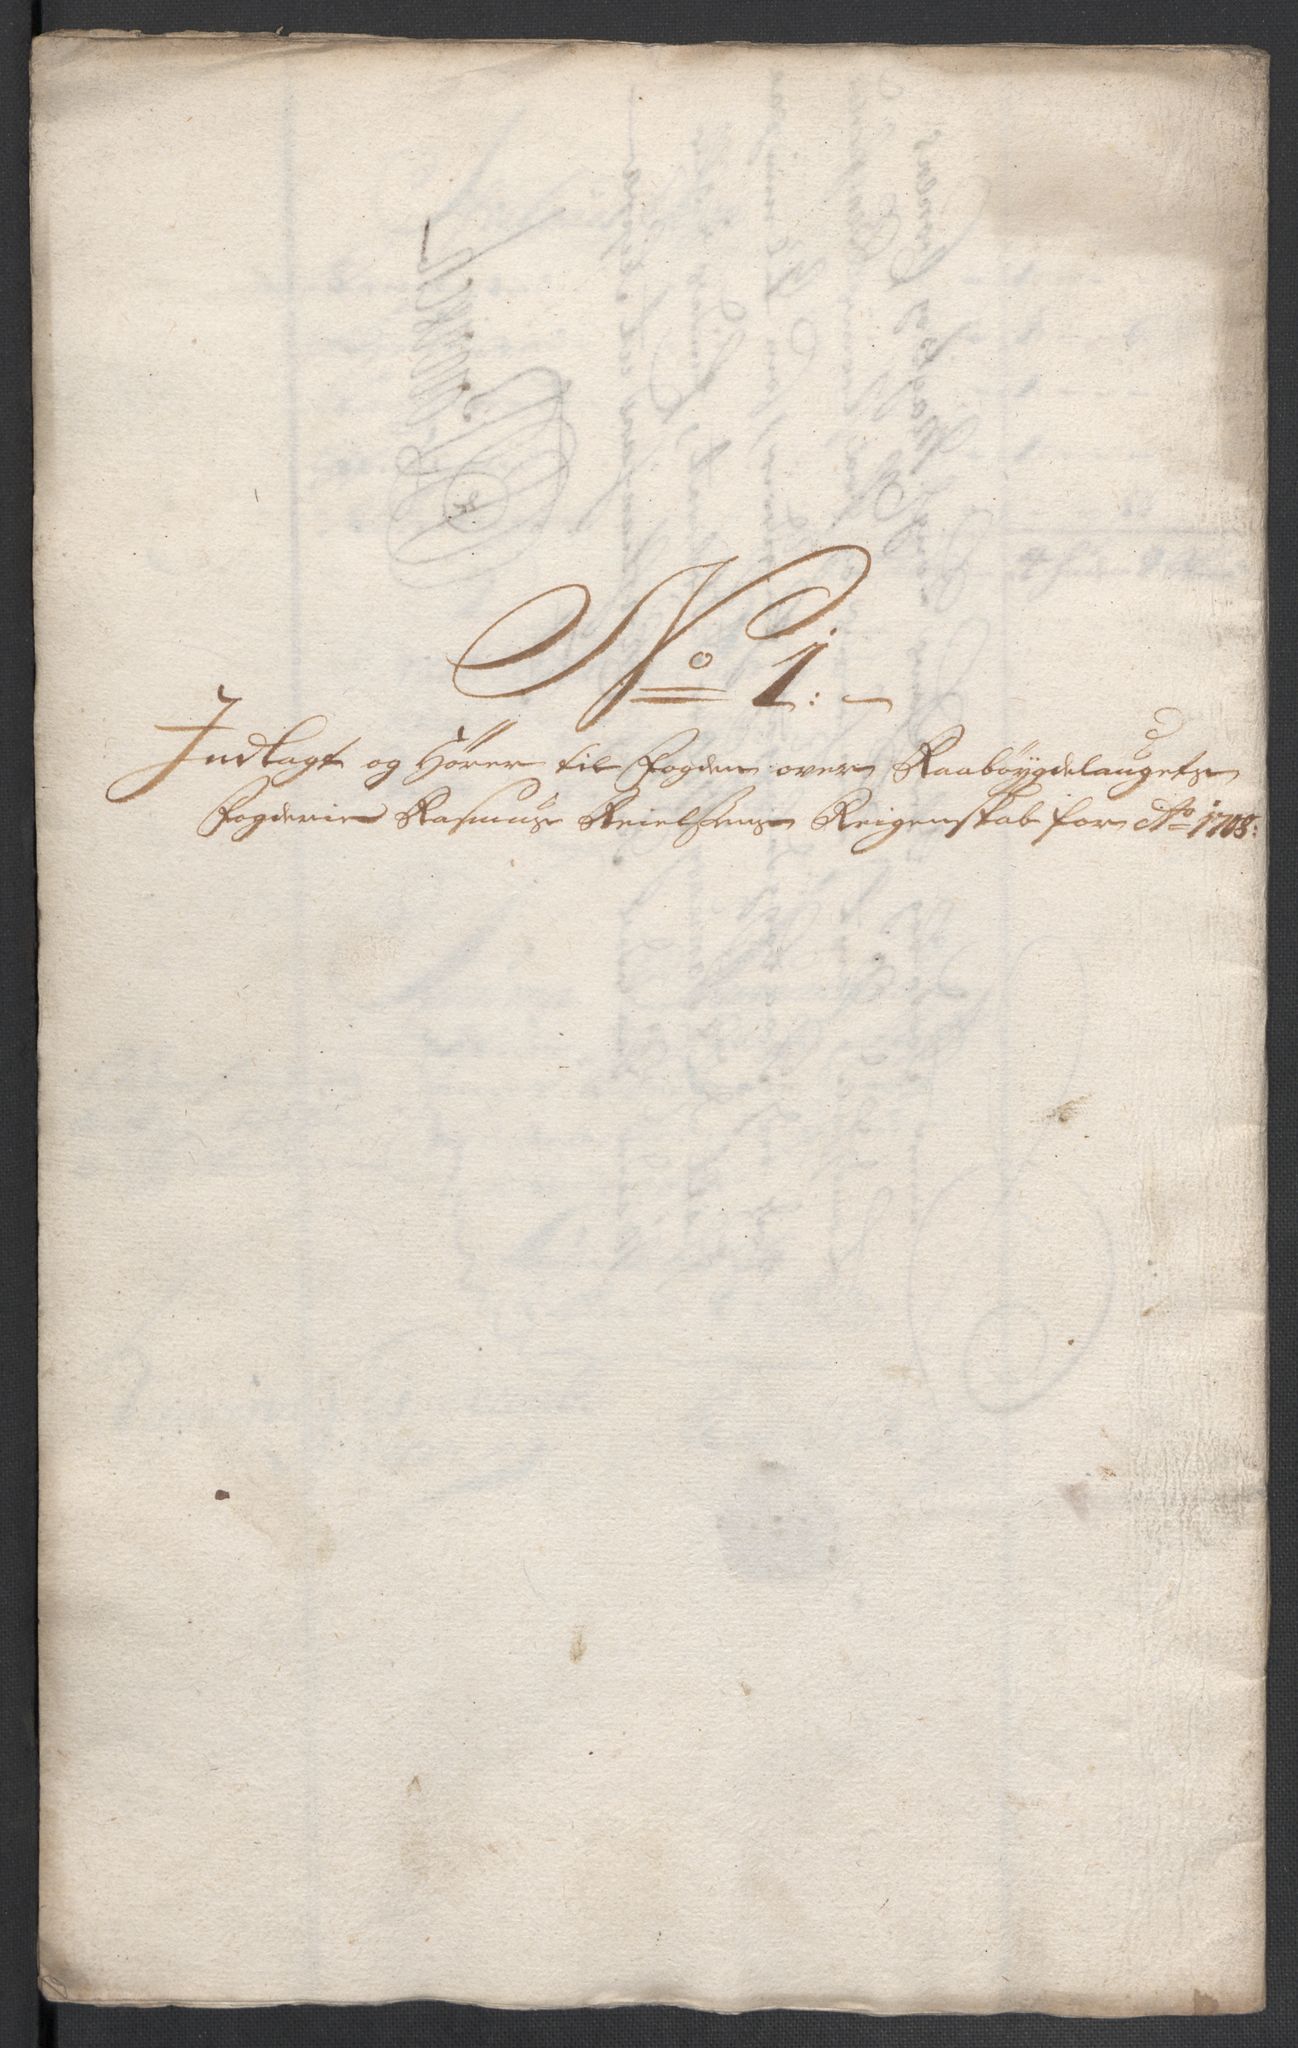 No 1: –
Indlagt og Hører til Fogden over Raabøygdelaugets
Fogderie Rasmus Reielsens Reigenskab for Ao 1708: